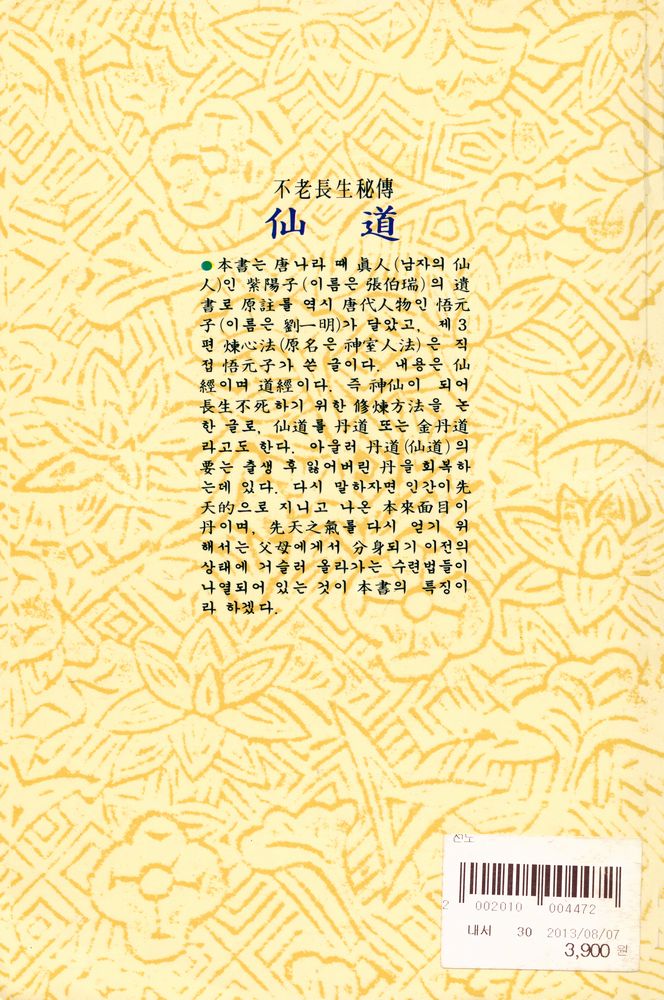 不老長生秘傳
仙 道
● 本書는 唐나라 때 眞人(남자의 仙
人)인 紫陽子(이름은 張伯瑞)의 遺
書로 原註를 역시 唐代人物인 悟元
子(이름은 劉一明)가 달았고, 제3
편 煉心法(原名은 神室人法)은 직
접 悟元子가 쓴 글이다. 내용은 仙
經이며 道經이다. 즉 神仙이 되어
長生不死하기 위한 修煉方法을 논
한 글로, 仙道를 丹道 또는 金丹道
라고도 한다. 아울러 丹道(仙道)의
要는 출생 후 잃어버린 丹을 회복하
는데 있다. 다시 말하자면 인간이 先
天的으로 지니고 나온 本來面目이
丹이며, 先天之氣를 다시 얻기 위
해서는 父母에게서 分身되기 이전의
상태에 거슬러 올라가는 수련법들이
나열되어 있는 것이 本書의 특징이
라 하겠다.
2 002010 004472
내서 30 2013/08/07
3,900 원